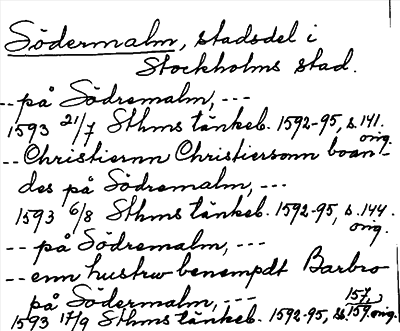 Södermalm, stadsdel i
Stockholms stad.
-- på Södremalm, ---
1593 21/7 Sthms tänkeb. 1592-95, s. 141.
orig.
-- Christiernn Christiersonn boan-
des på Södremalm, ---
1593 6/8 Sthms tänkeb. 1592-95, s. 144.
orig.
-- på Södremalm, ---
-- enn hustrw benempdt Barbro
på Södermalm, --- 157,
1593 17/9 Sthms tänkeb. 1592-95, ss. 159. orig.